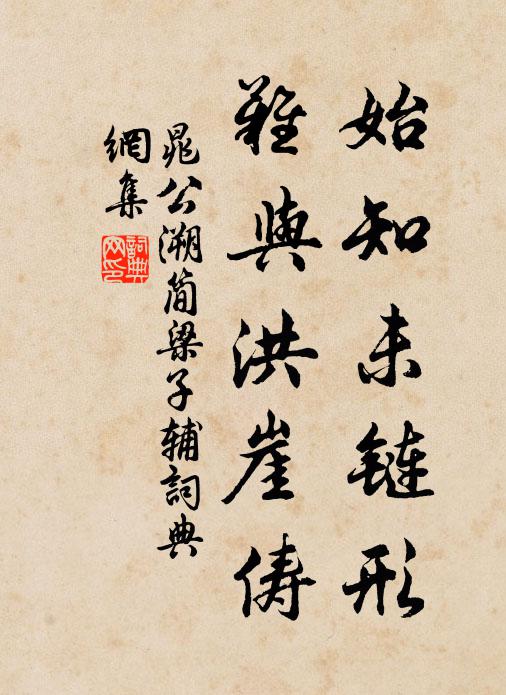 始知未鏈形
難與洪崖儔
晁公溯簡梁子輔詞典
網集
詞典
网印